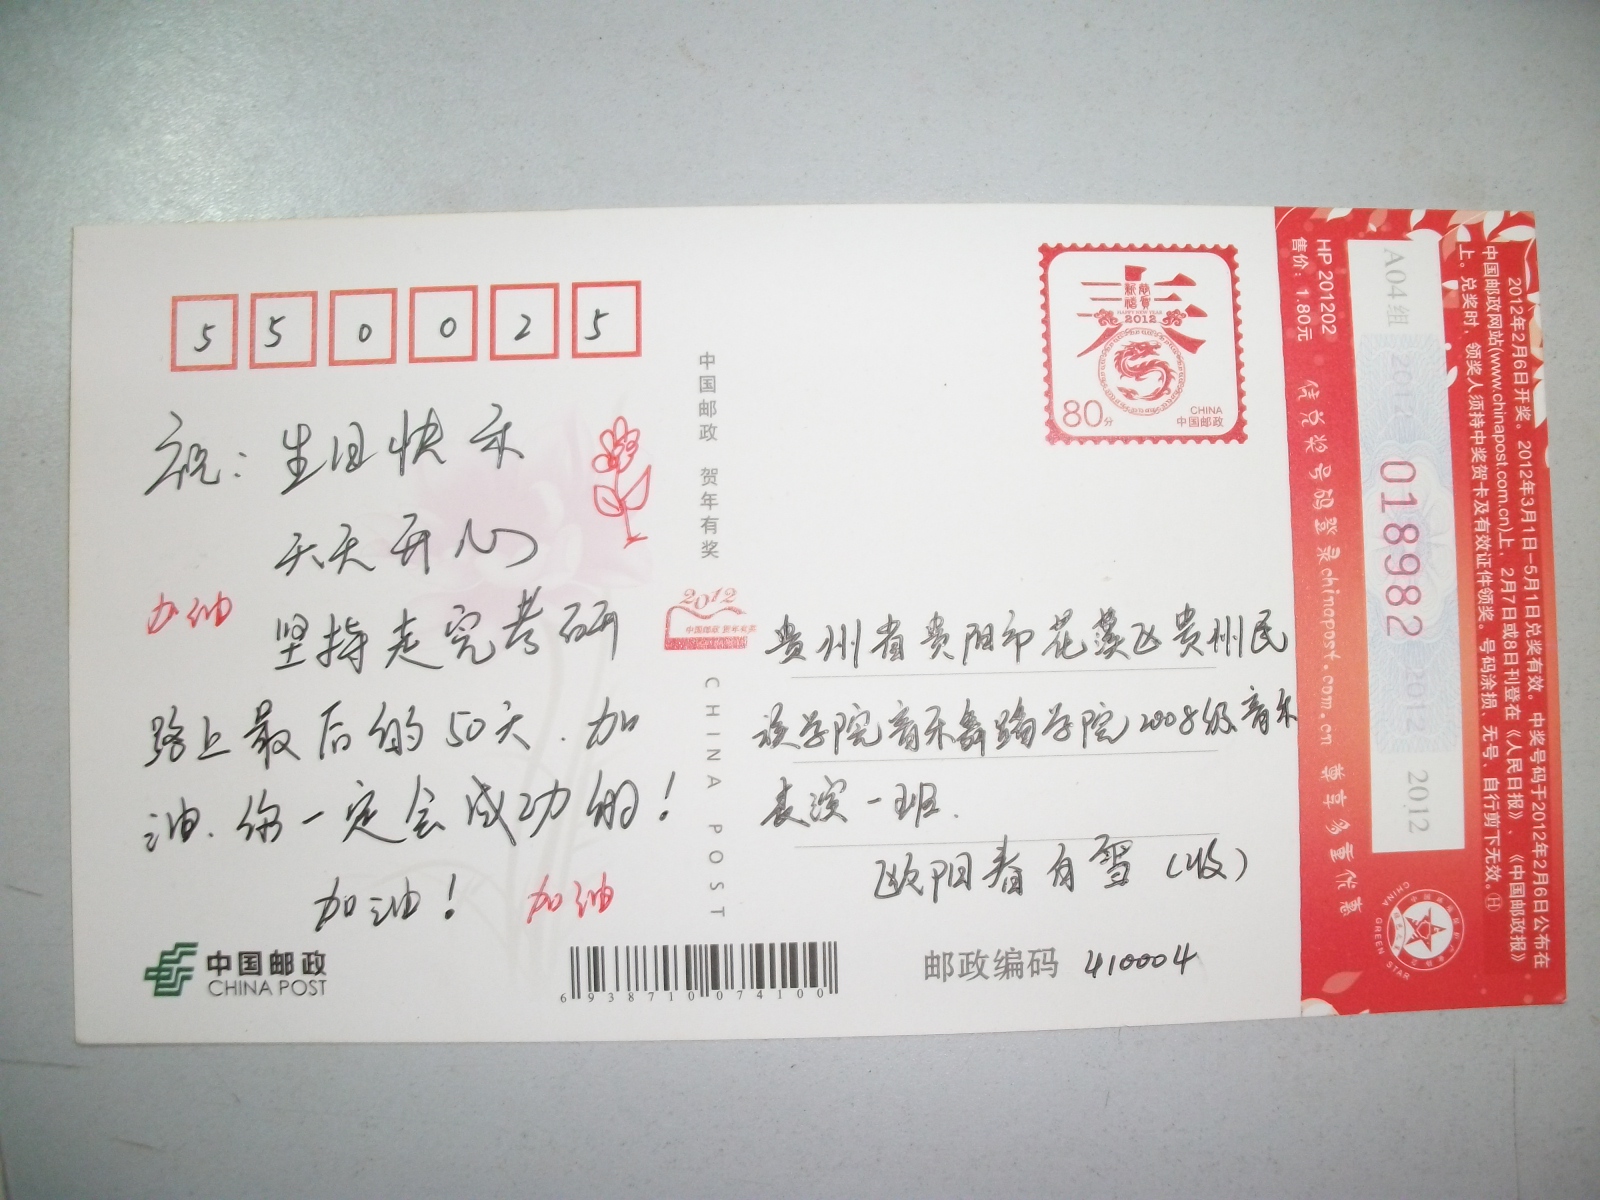 550025
祝：生日快乐
天天开心
加油
坚持走完考研
路上最后的50天.加
油.你一定会成功的！
加油！ 加油
中国邮政
CHINA POST
6938710074100
中国邮政 贺年有奖
2012
中国邮政 贺年有奖
CHINA POST
春
恭贺新禧
HAPPY NEW YEAR
2012
80分
CHINA
中国邮政
贵州省贵阳市花溪区贵州民
族学院音乐舞蹈学院2008级音乐
表演一班.
欧阳春白雪（收）
邮政编码 410004
2012年2月6日开奖。2012年3月1日-5月1日兑奖有效。中奖号码于2012年2月6日公布在
中国邮政网站(www.chinapost.com.cn)上，2月7日或8日刊登在《人民日报》、《中国邮政报》
上。兑奖时，领奖人须持中奖贺卡及有效证件领奖。号码涂损、无号、自行剪下无效。Ⓗ
A04组 2012 018982 2012 2012
HP 201202
售价：1.80元
凭兑奖号码登录chinapost.com.cn 尊享多重优惠
CHINA GREEN STAR